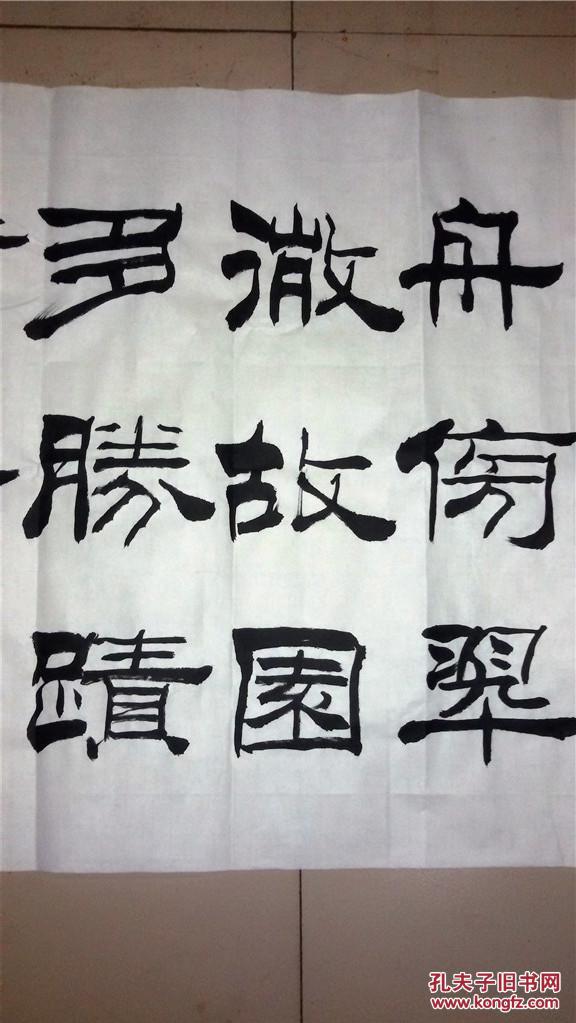 舟傍翠
微故園
多勝蹟
孔夫子旧书网
www.kongfz.com